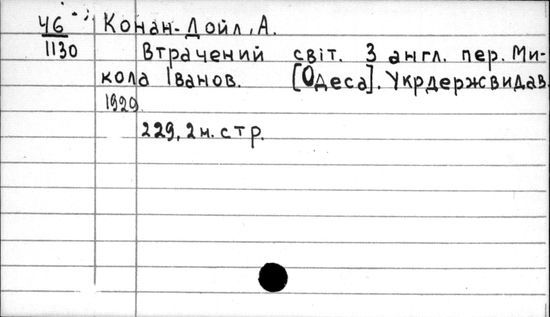 46 Конан-Дойл, А.
1130 Втрачений світ. З англ. пер. Ми-
кола Іванов. [Одеса]. Укрдержвидав.
1929.
229, 2 н. стр.